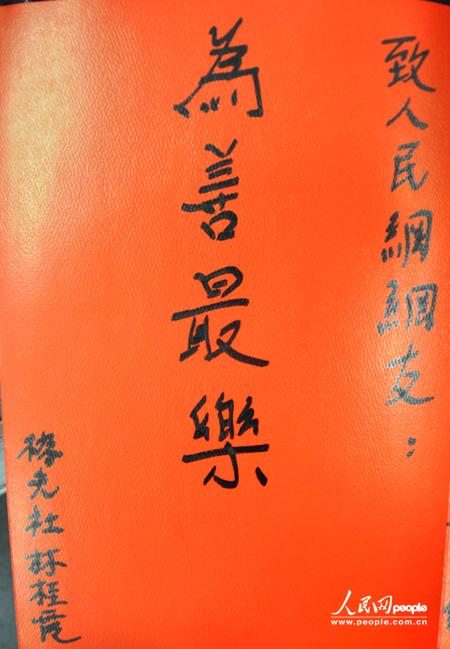 致人民網網友：
為善最樂
徐先社 林桂霞
人民网 people
www.people.com.cn